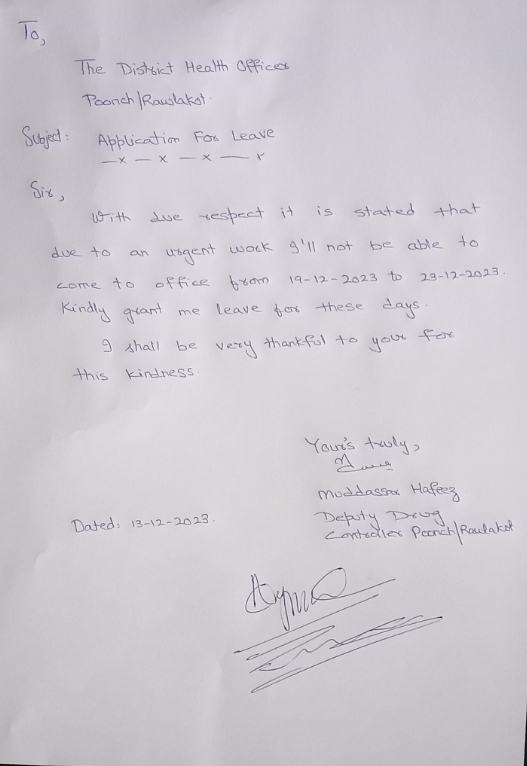 To,
The District Health Officer
Poonch/Rawlakot.
Subject: Application For Leave
—x—x—x—x
Sir,
With due respect it is stated that
due to an urgent work I'll not be able to
come to office from 19-12-2023 to 23-12-2023.
Kindly grant me leave for these days.
I shall be very thankful to your for
this kindness.
Your's truly,
Muddassar Hafeez
Dated: 13-12-2023.
Deputy Drug
Controller Poonch/Rawlakot